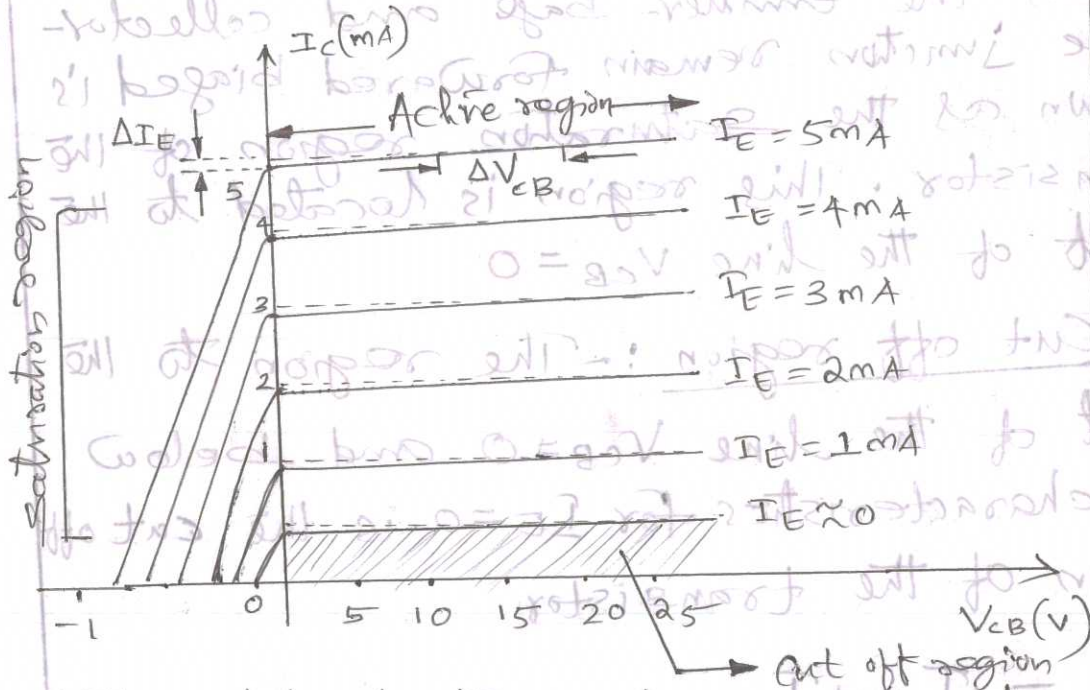 I_C (mA)
Active region
ΔI_E
ΔV_CB
I_E = 5mA
I_E = 4mA
I_E = 3mA
I_E = 2mA
I_E = 1mA
I_E ≈ 0
Saturation region
5
4
3
2
1
-1 0 5 10 15 20 25
V_CB (V)
cut off region